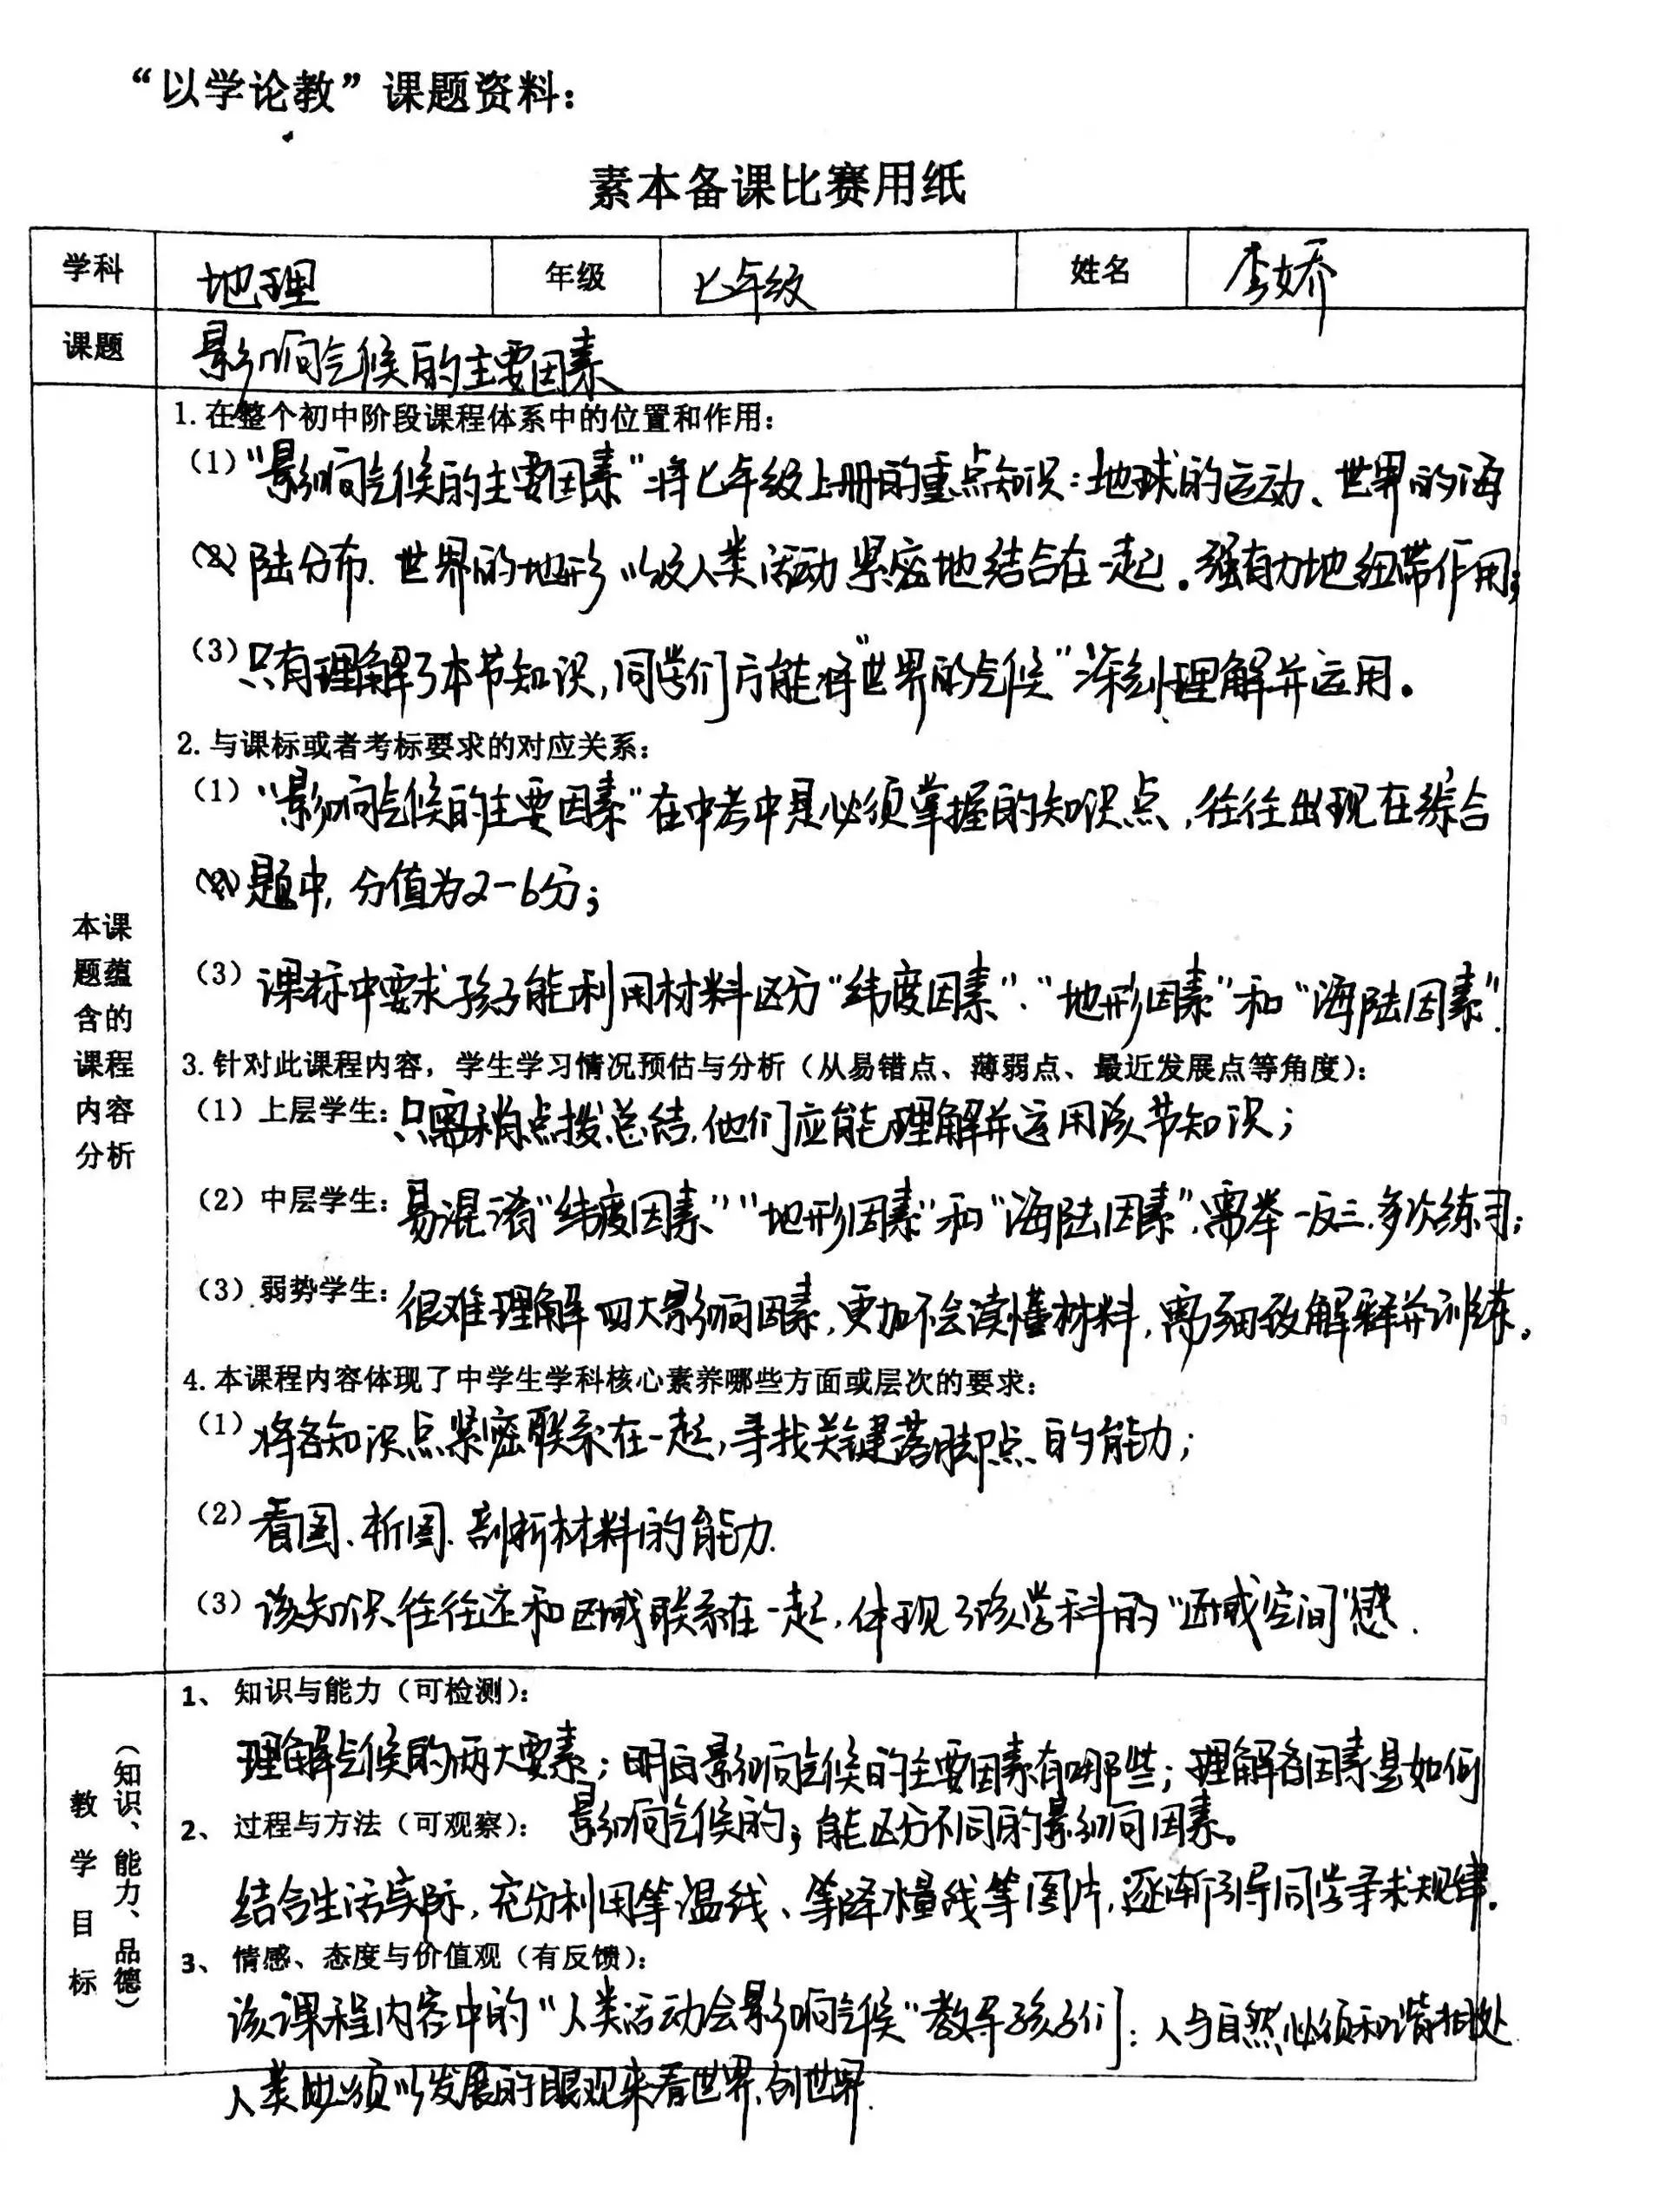 “以学论教”课题资料：
素本备课比赛用纸
学科 地理 年级 七年级 姓名 李娇
课题 影响气候的主要因素
本课题蕴含的课程内容分析
1.在整个初中阶段课程体系中的位置和作用：
（1）“影响气候的主要因素”将七年级上册的重点知识：地球的运动、世界的海
（2）陆分布、世界的地形以及人类活动紧密地结合在一起。强有力地纽带作用；
（3）只有理解了本节知识，同学们方能将“世界的气候”深刻理解并运用。
2.与课标或者考标要求的对应关系：
（1）“影响气候的主要因素”在中考中是必须掌握的知识点，往往出现在综合
题中，分值为2-6分；
（3）课标中要求孩子能利用材料区分“纬度因素”、“地形因素”和“海陆因素”.
3.针对此课程内容，学生学习情况预估与分析（从易错点、薄弱点、最近发展点等角度）：
（1）上层学生：只需稍点拨总结，他们应能理解并运用该节知识；
（2）中层学生：易混淆“纬度因素”“地形因素”和“海陆因素”，需举一反三，多次练习；
（3）弱势学生：很难理解四大影响因素，更加不会读懂材料，需细致解释并训练。
4.本课程内容体现了中学生学科核心素养哪些方面或层次的要求：
（1）将各知识点紧密联系在一起，寻找关键落脚点的能力；
（2）看图、析图、剖析材料的能力.
（3）该知识往往还和区域联系在一起，体现了该学科的“区域空间”感.
教学目标（知识、能力、品德）
1、知识与能力（可检测）：
理解气候的两大要素；明白影响气候的主要因素有哪些；理解各因素是如何
2、过程与方法（可观察）： 影响气候的；能区分不同的影响因素。
结合生活实际，充分利用等温线、等降水量线等图片，逐渐引导同学寻求规律。
3、情感、态度与价值观（有反馈）：
该课程内容中的“人类活动会影响气候”教导孩子们：人与自然必须和谐相处
人类必须以发展的眼观来看世界、创世界.